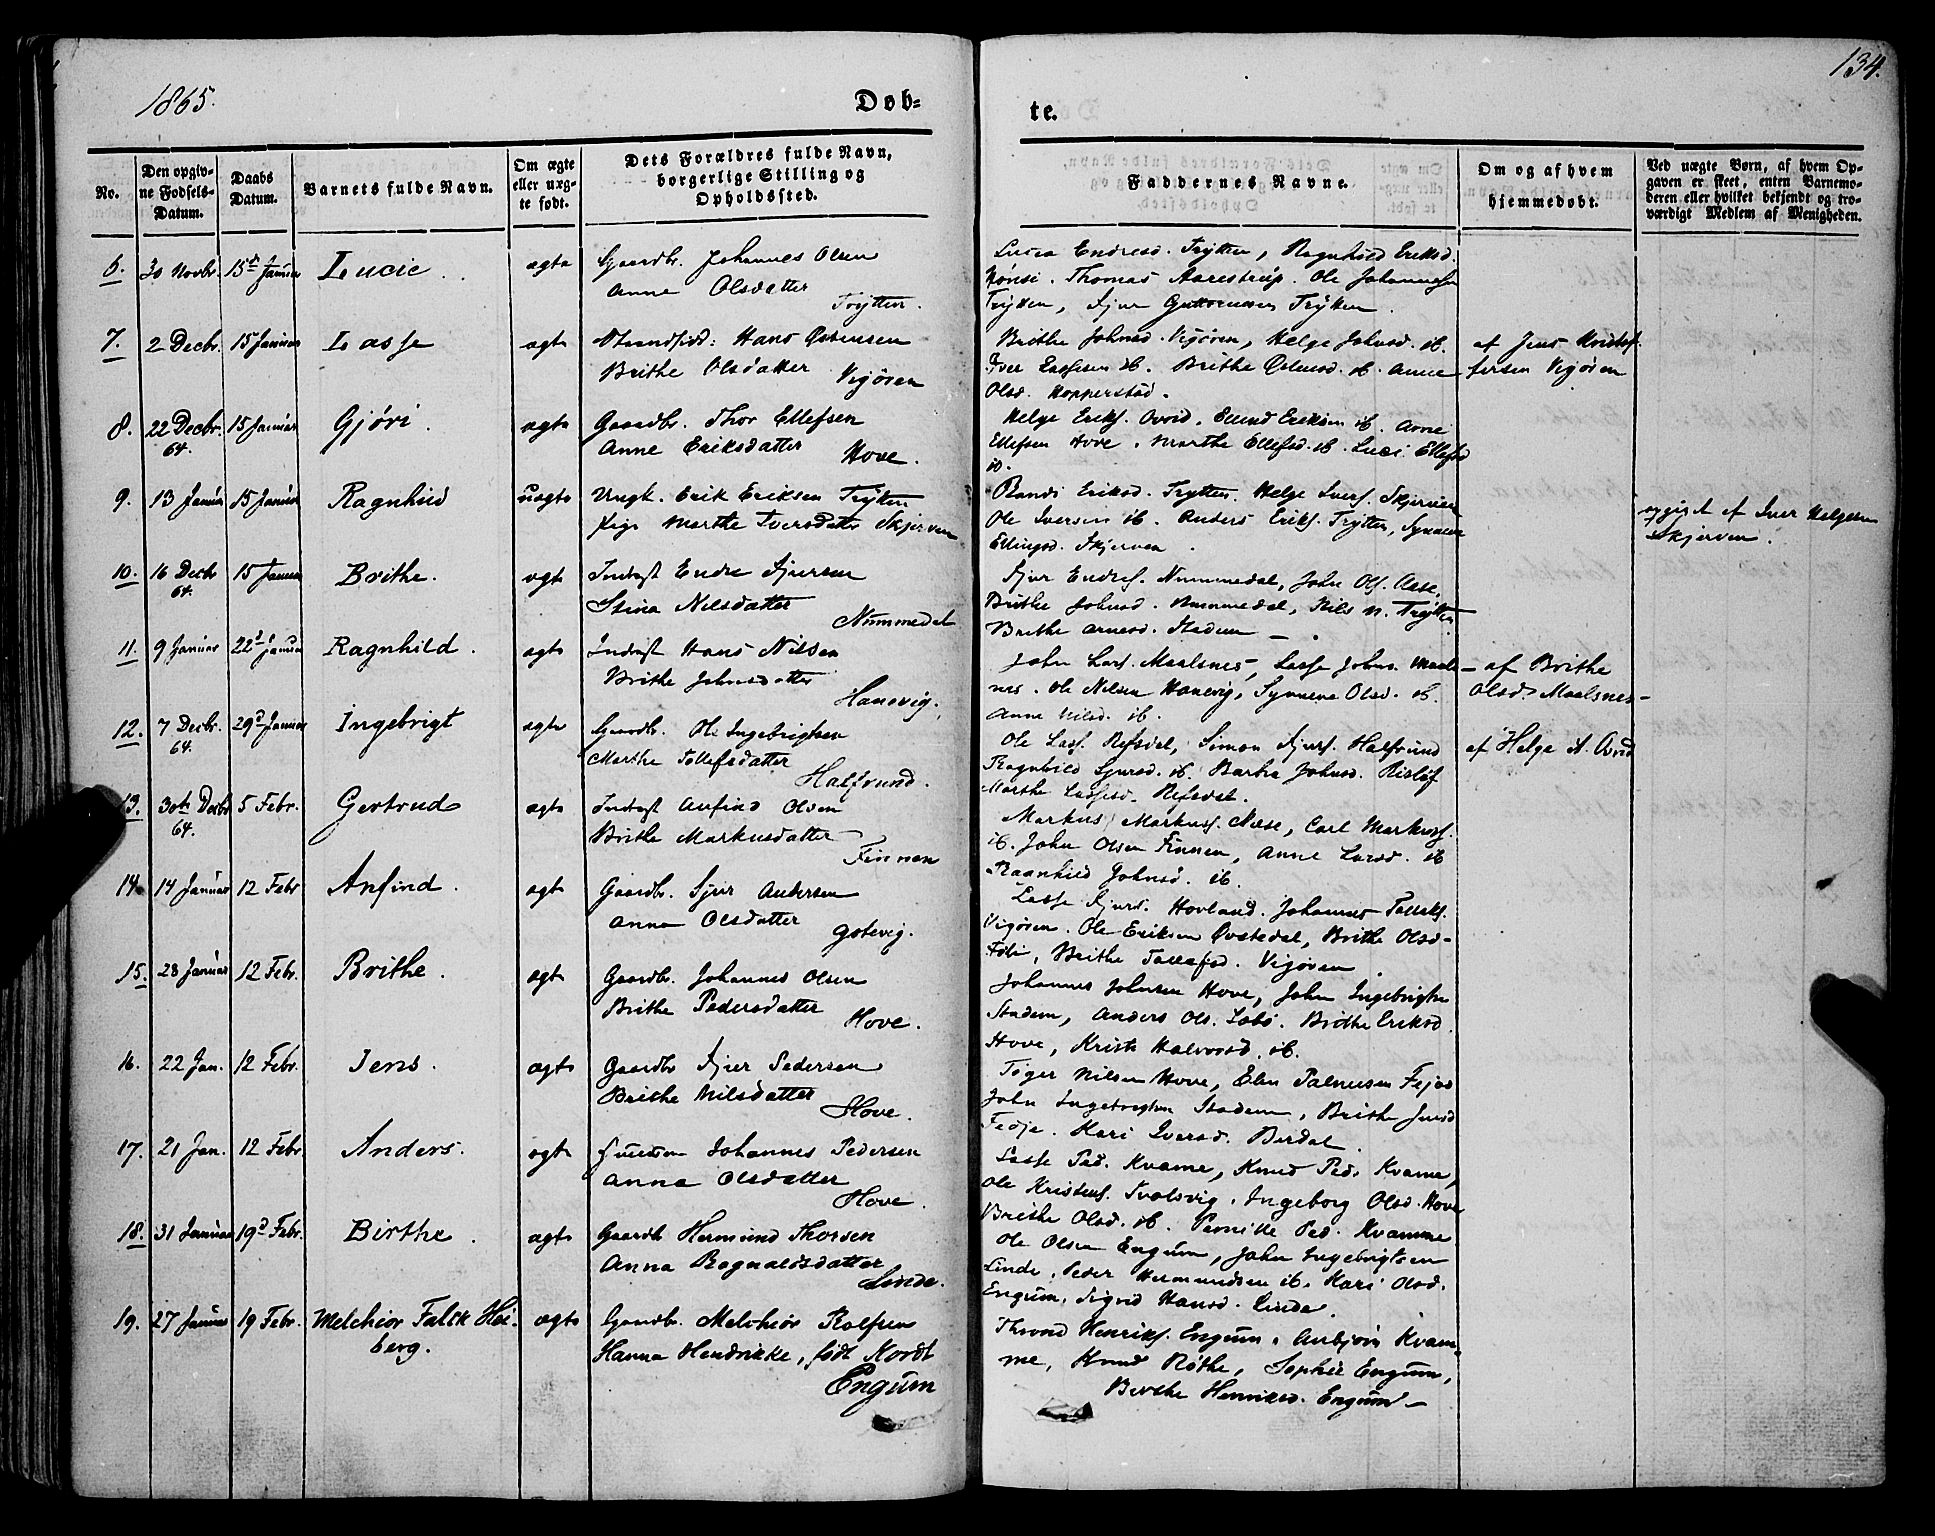 1865.
Døb-
te.
134.
No.
Den opgiv-
ne Fødsels-
Datum.
Daabs
Datum.
Barnets fulde Navn.
Om ægte
eller uæg-
te født.
Dets Forældres fulde Navn,
borgerlige Stilling og
Opholdssted.
Faddernes Navne.
Om og af hvem
hjemmedøbt.
Ved uægte Børn, af hvem Op-
gaven er skeet, enten Barnemo-
deren eller hvilket bekjendt og tro-
værdigt Medlem af Menigheden.
6. 30 Novbr. 15d Januar Lucie. ægte Gaardbr. Johannes Olsen
Anne Olsdatter
Trytten.
Lucia Endresd. Trytten, Ragnhild Eriksd.
Hønsi. Thomas Aarestrup. Ole Johannesen
Trytten, Sjur Guttormsen Trytten.
7. 2 Decbr. 15 Januar Lasse ægte Strandsidd: Hans Østensen
Brithe Olsdatter Vigøren
Brithe Johnsd. Vigøren, Helge Johnsd. ib.
Iver Lassesen ib. Brithe ib. Anne
Olsd. Hopperstad.
af Jens Kristof-
fersen Vigøren
8. 22 Decbr. 64. 15 Januar Gjøri. ægte Gaardbr. Thor Ellefsen
Anne Eriksdatter Hove.
Helge Eriks. Ovrid. Ellend Eriksen ib. Arne
Ellefsen Hove. Marthe Ellefsd. ib. Luci Ellefsd
ib.
9. 13 Januar 15 Januar Ragnhild uægte Ungk. Erik Eriksen Trytten
Pige Marthe Iversdatter Skjerven
Randi Eriksd. Trytten. Helge Ivers. Skjerven
Ole Iversen ib. Anders Eriks. Trytten, Synneve
Ellingsd. Skjerven.
opgivet af Iver Helgesen
Skjerven.
10. 16 Decbr 64. 15 Januar Brithe. ægte Inderst Endre Sjursen
Stina Nilsdatter
Nummedal
Sjur Endres. Nummedal, John Ols. Aase,
Brithe Johnsd. Nummedal, Nils N. Trytten
Brithe Arnesd. Stadem.
11. 9 Januar 22d Januar Ragnhild. ægte Inderst Hans Nilsen
Brithe Johnsdatter
Hanevig.
John Lars. Maalsnes, Lasse Johns. Maals-
nes. Ole Nilsen Hanevig, Synneve Olsd. ib.
Anne Nilsd. ib.
af Brithe
Olsd. Maalsnes
12. 7 Decbr. 64. 29d Januar Ingebrigt ægte Gaardbr. Ole Ingebrigtsen
Marthe Tollefsdatter
Halfvund.
Ole Lass. Refsdal, Simon Sjurs. Halfvund
Ragnhild Sjursd. ib. Barbra Johnsd. Risløf
Marthe Lassesd. Refsdal.
af Helge A. Ovrid
13. 30te Decbr 64. 5 Febr. Gertrud ægte Inderst Anfind Olsen
Brithe Markusdatter
Finnen
Markus Markuss. Næse, Carl Markuss.
ib. John Olsen Finnen, Anne Larsd. ib
Ragnhild Johnsd. ib.
14. 14 Januar 12 Febr Anfind. ægt Gaardbr. Sjur Andersen
Anna Olsdatter
Gotevig.
Lasse Sjurs. Hovland. Johannes Tollefs.
Vigøren. Ole Eriksen Øvstedal, Brithe Olsd-
Føli, Brithe Tollefsd. Vigøren.
15. 28 Januar 12 Febr. Brithe. ægt Gaardbr. Johannes Olsen
Brithe Pedersdatter
Hove.
Johannes Johnsen Hove, John Ingebrigtsen
Stadem, Anders Ols. Lobø. Brithe Eriksd.
Hove, Kristi Halvorsd. ib.
16. 22 Jan. 12 Febr. Jens. ægte Gaardbr Sjur Pedersen
Brithe Nilsdatter
Hove.
Tøger Nilsen Hove, Elen Fejos
John Ingebrigtsen Stadem, Brithe Jensd
Fedje. Kari Iversd. Berdal.
17. 21 Jan. 12 Febr Anders. ægt Huusm Johannes Pedersen
Anna Olsdatter
Hove.
Lasse Ped. Kvame, Knud Ped. Kvame,
Ole Kristens. Tvolsvig, Ingeborg Olsd. Hove
Brithe Olsd. ib. Pernille Ped. Kvamme
18. 31 Januar 19d Febr. Birthe. ægte Gaardb Hermund Thorsen
Anna Ragnaldsdatter
Linde.
Ole Olsen Engum, John Ingebrigtsen
Linde, Peder Hermundsen ib. Kari Olsd.
Engum, Sigrid Hansd. Linde.
19. 27 Januar 19 Febr. Melchior Falck Hei-
berg. ægte Gaardbr. Melchior Rolfsen
Hanna Hendrikke, født Nordt
Engum
Thrond Henriks. Engum. Anbjørn Kvam-
me, Knud Røthe, Sophie Engum,
Birthe Henriksd. Engum